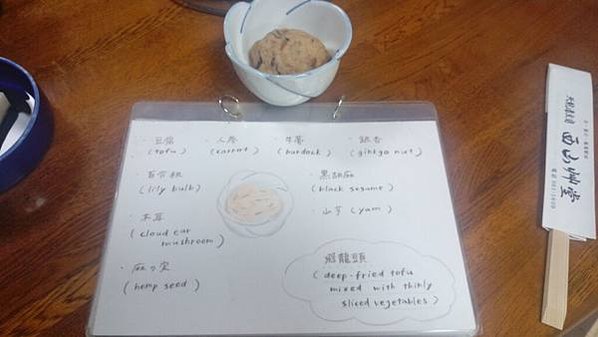 ・豆腐
(tofu)
・人参
(carrot)
・牛蒡
(burdock)
・銀杏
(ginkgo nut)
・百合根
(lily bulb)
・黒胡麻
(black sesame)
・木耳
(cloud ear
mushroom)
・山芋 (yam)
・麻の実
(hemp seed)
飛龍頭
(deep-fried tofu
mixed with thinly
sliced vegetables)
西山艸堂